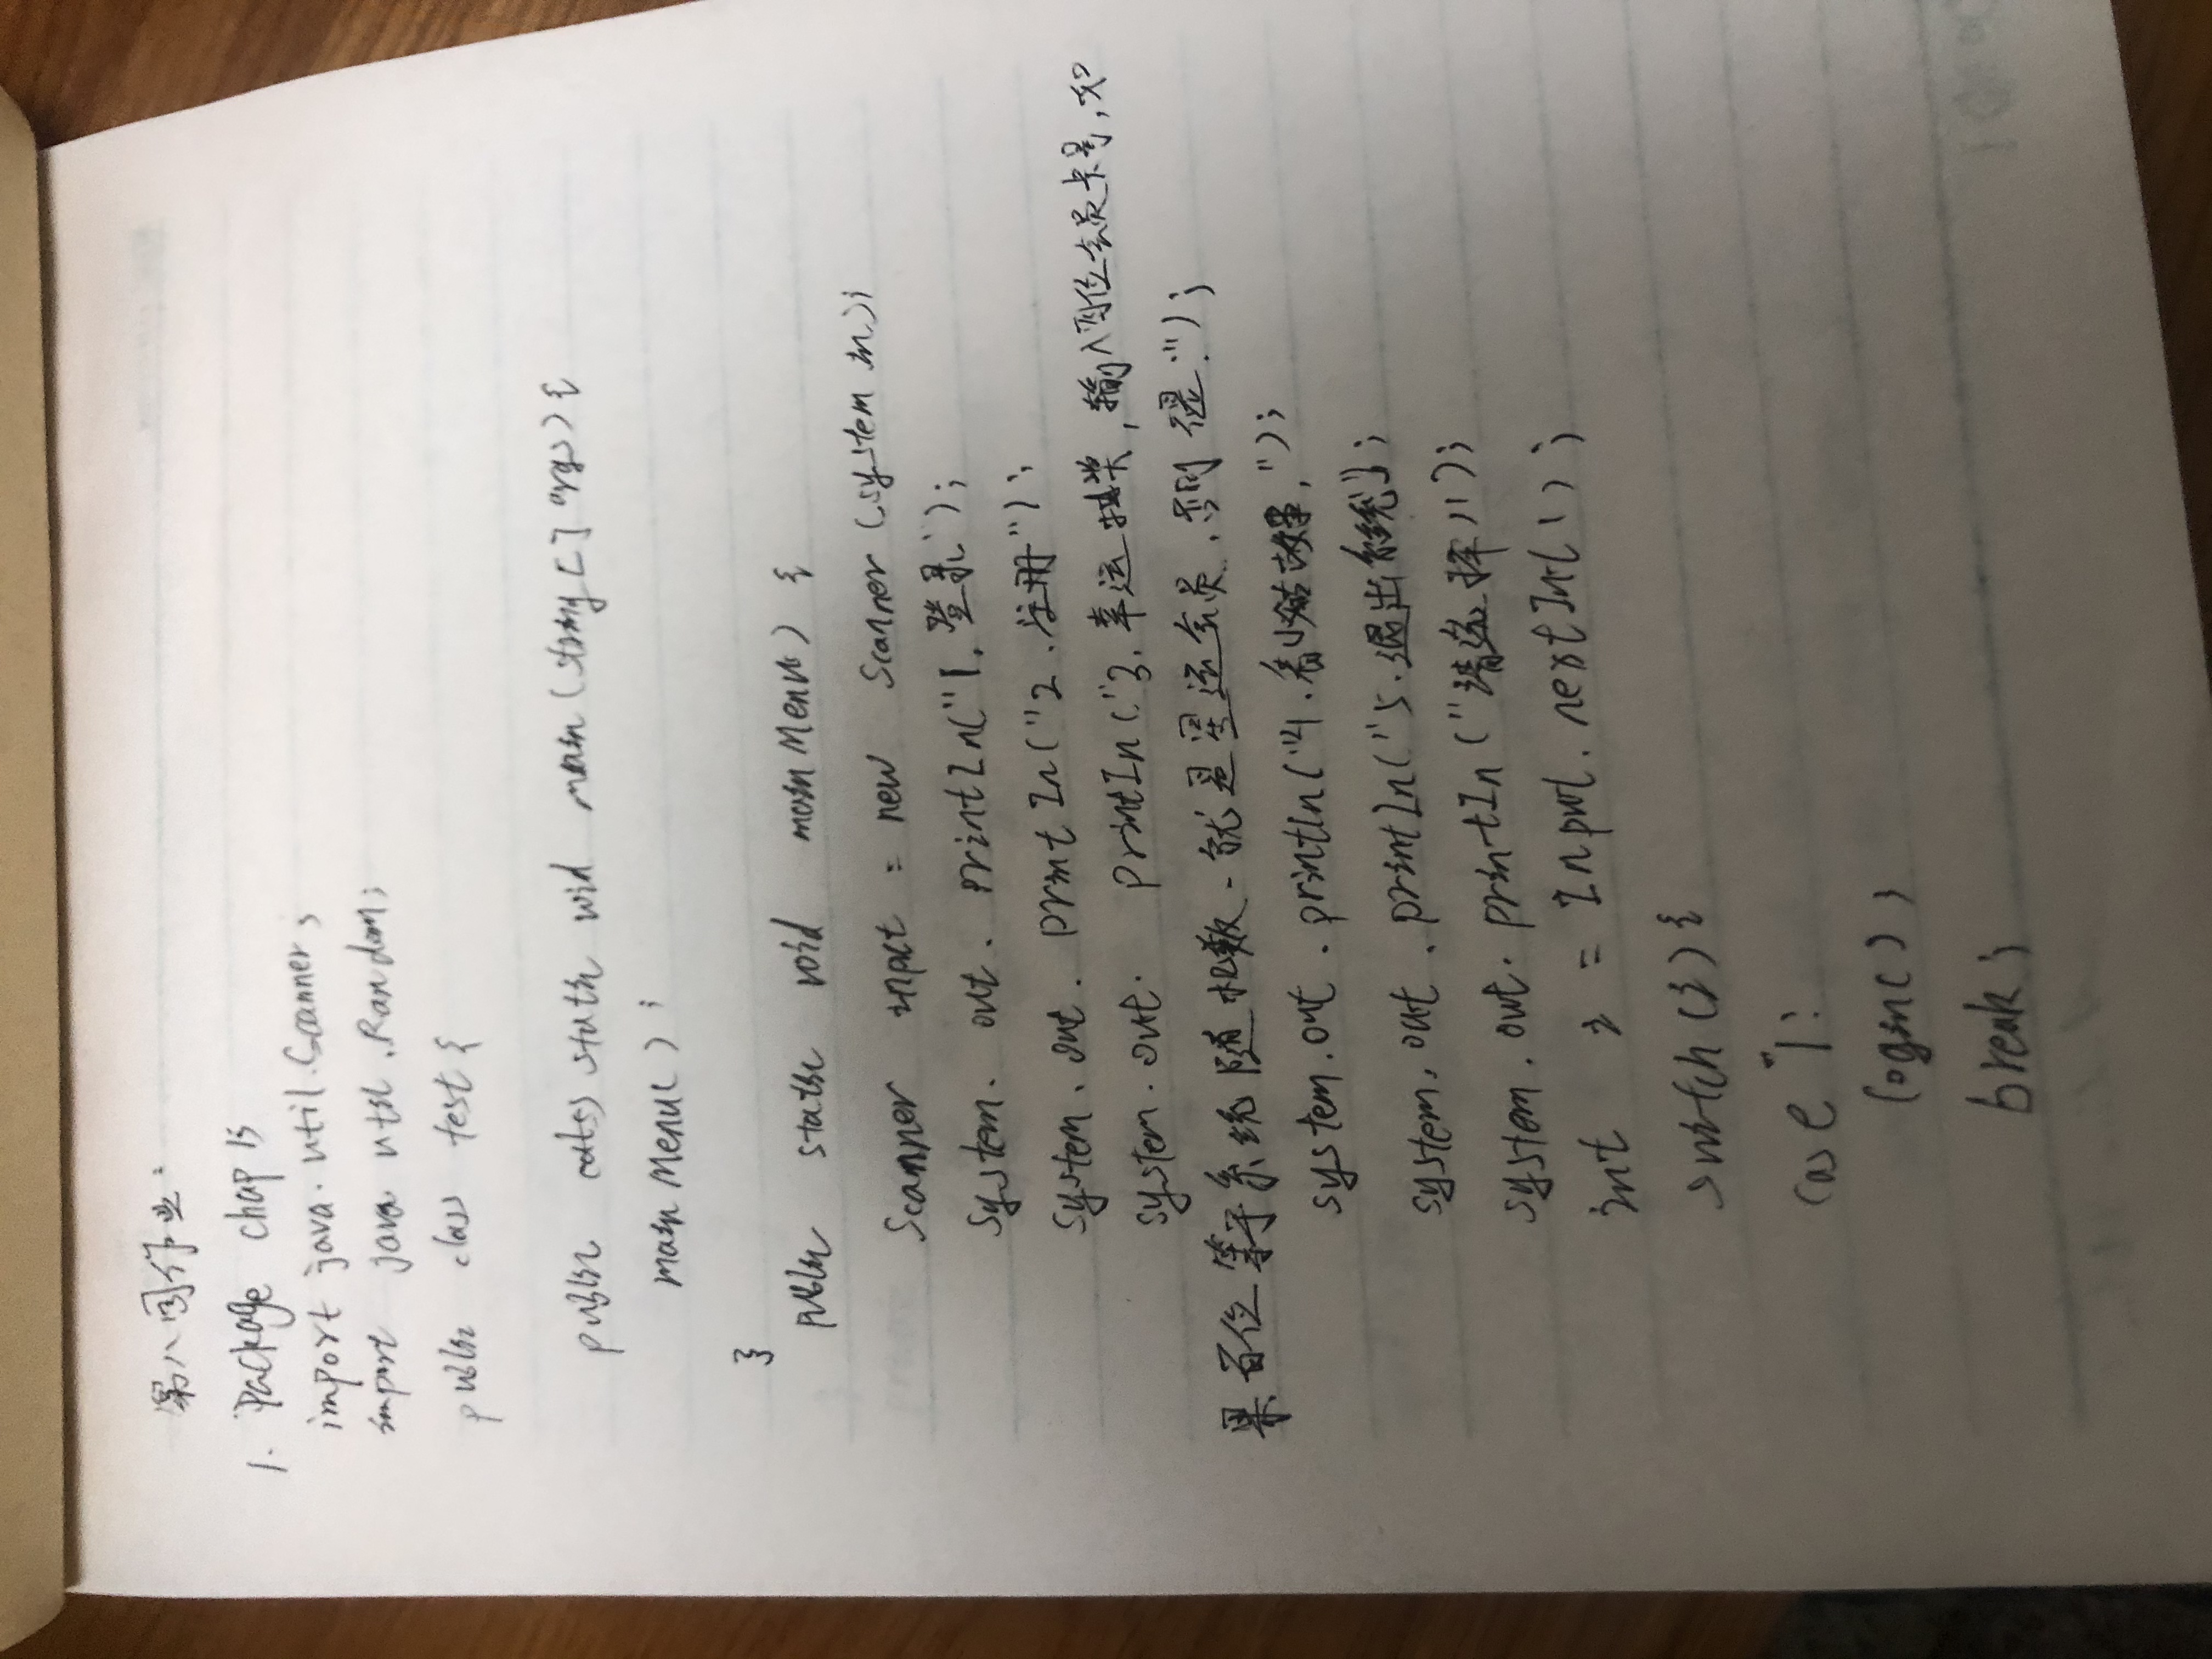 第八周作业:
1. Package chap 13
import java.util.Scanner;
import java util.Random;
public class test {
public static void main (string [] args) {
main Menu ( ) ;
}
public static void main Menu ( ) {
Scanner input = new Scanner (system in);
system. out. printIn("1. 登录");
system. out. print In ("2. 注册");
system. out. printIn ("3. 幸运抽奖, 输入四位会员卡号, 如
果百位等于系统随机数. 就是幸运会员. 否则 .");
system. out. println ("4. 看 故 , ");
system. out. printIn ("5. 退出系统");
system. out. printIn ("请选择");
int = Input. next Int ( ) ;
switch ( ) {
case 1:
login( );
break;